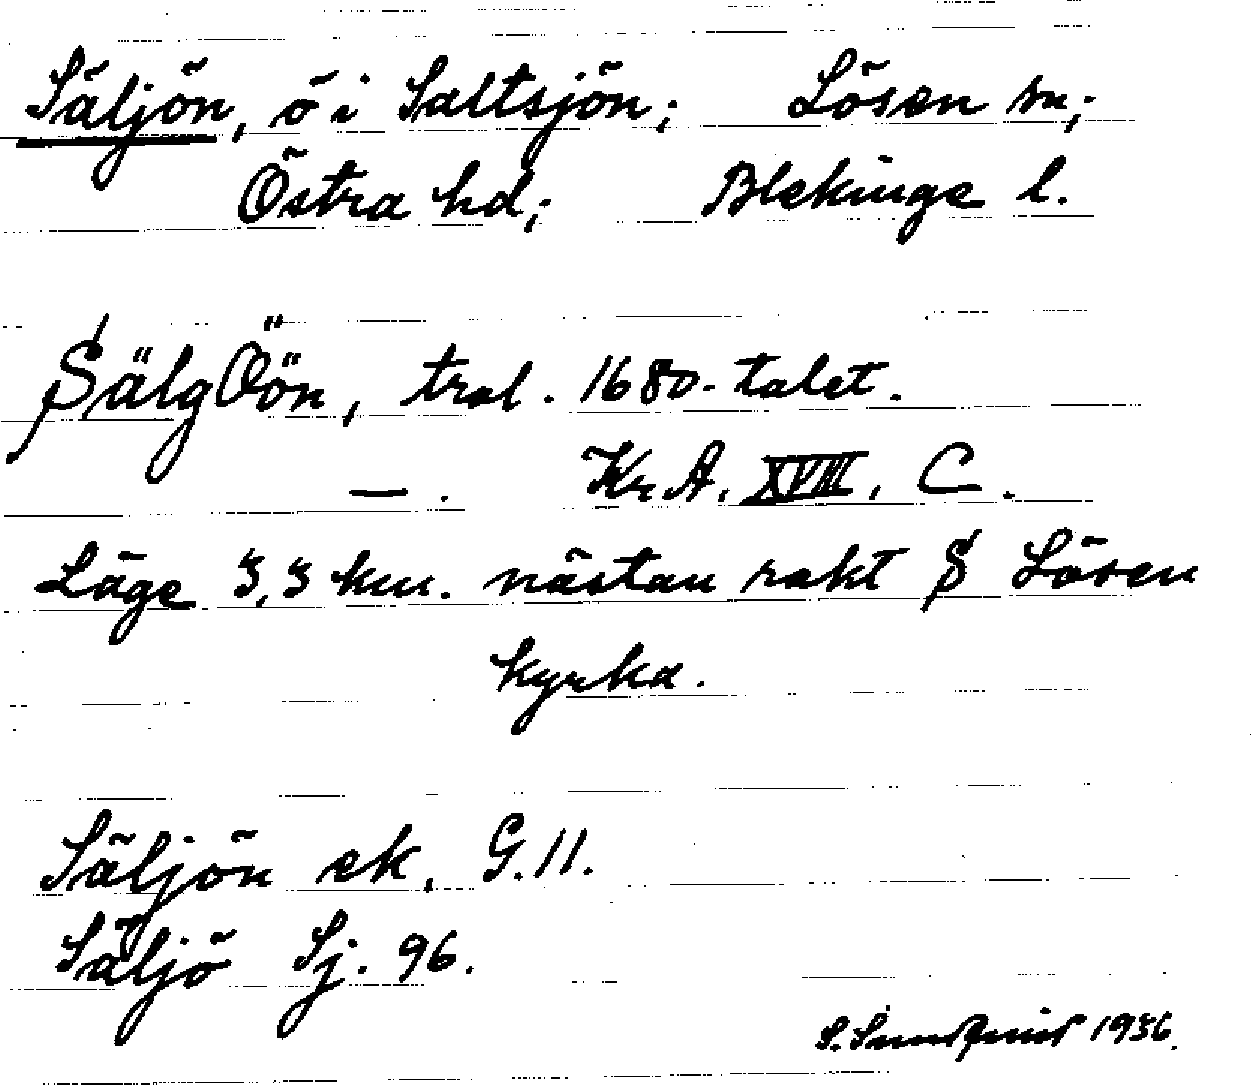 Säljön, ö i Saltsjön; Lösen sn;
Östra hd; Blekinge l.
SälgÖön, trol. 1680-talet.
— . Kr. A. XVIII, C.
Läge 3,3 km. nästan rakt S Lösen
kyrka.
Säljön ek. G.11.
Säljö Sj. 96.
S. 1936.